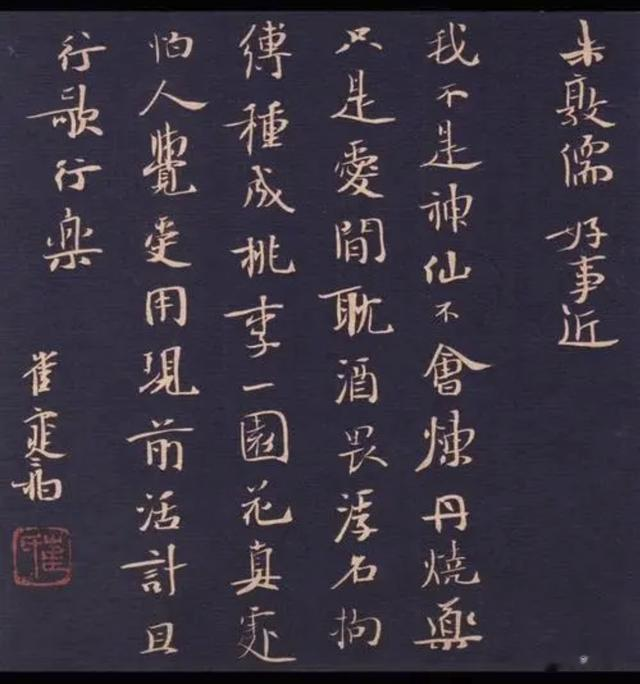 朱敦儒 好事近
我不是神仙不會煉丹燒藥
只是愛閒耽酒畏浮名拘
縛種成桃李一園花真處
怕人覺受用現前活計且
行歌行楽
崔